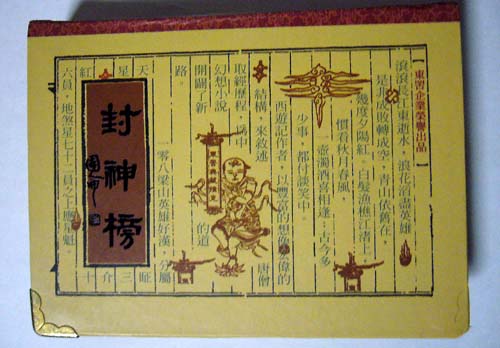 企業榮譽出品
滾滾長江東逝水，浪花淘盡英雄
是非成敗轉成空，青山依舊在，
幾度夕陽紅。白髮漁樵江渚上，
慣看秋月春風，
壺濁酒喜相逢；古今多
少事，都付談笑中。
西遊記作者，以豐富的想像，偉的
結構，來敘述 唐僧
取經歷程 中
幻想小說
開闢了新 的道
路。
一零八梁山英雄好漢，分屬
天星 三十
封神榜
六員，地煞星七十二員之上應星魁。